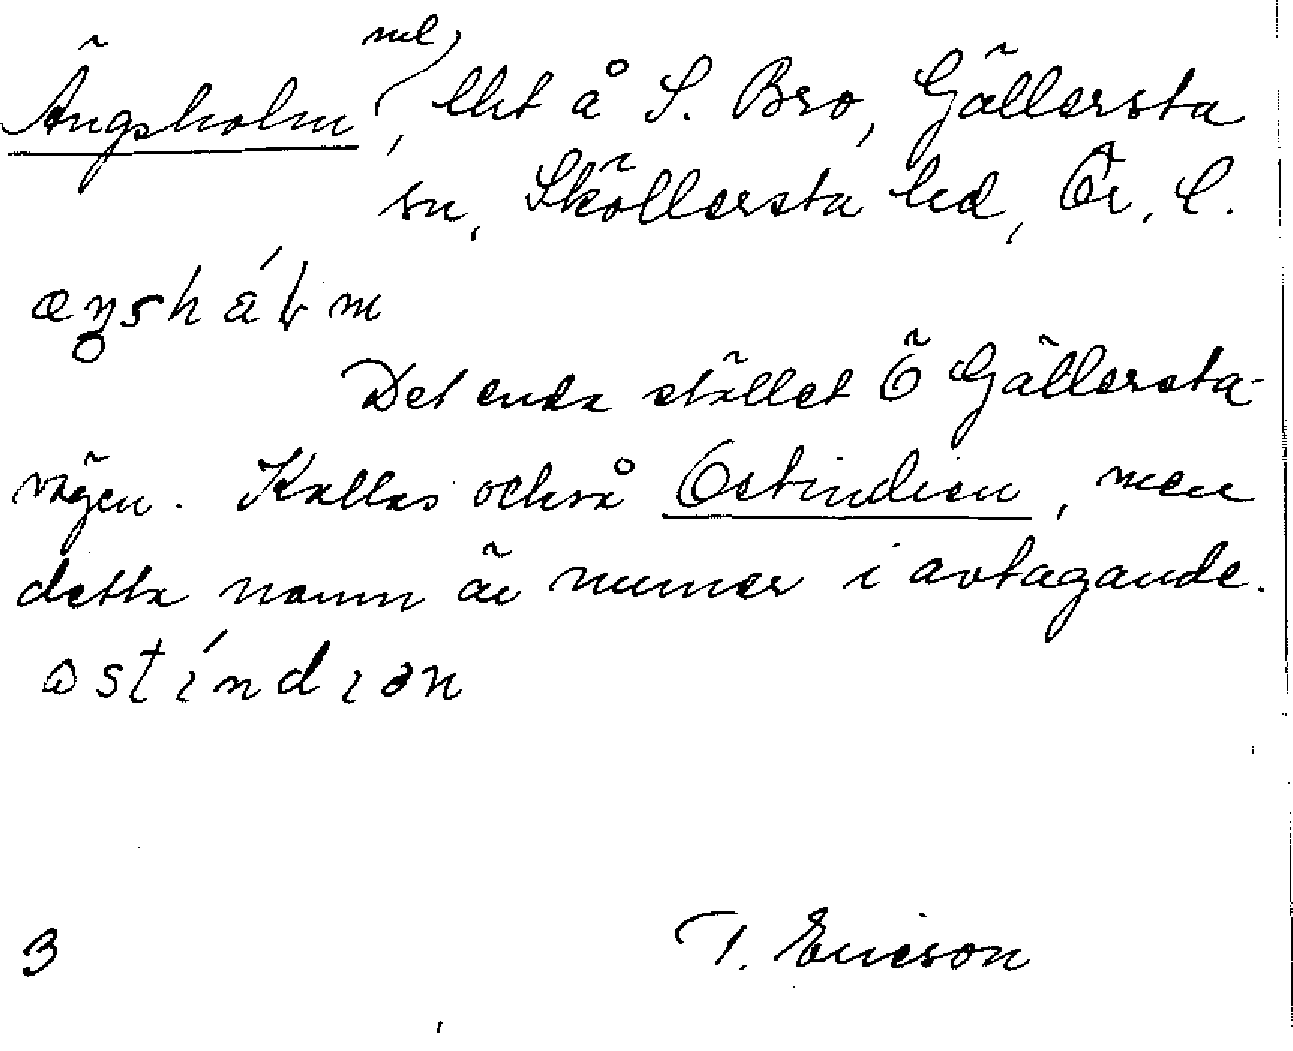 Ängsholm nel, lht å S. Bro, Gällersta
sn, Sköllersta hd, Ör. l.
Det enda stället Ö Gällersta-
vägen. Kallas också Ostindien, men
detta namn är numer i avtagande.
ostíndiən
3 T. Ericson